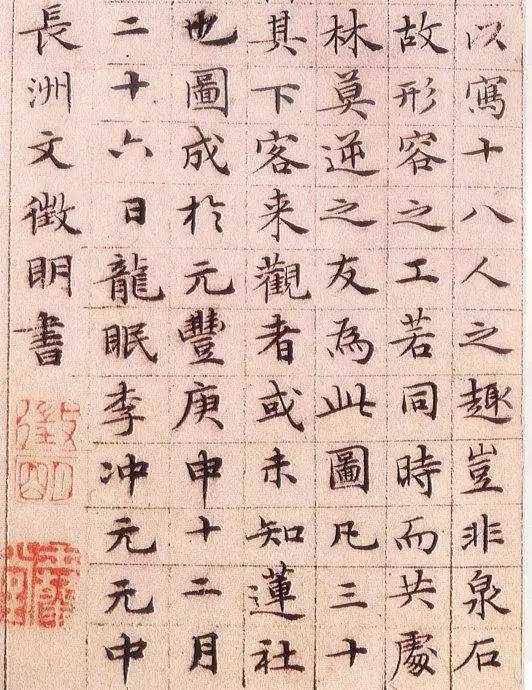 以寫十八人之趣豈非泉石
故形容之工若同時而共處
林莫逆之友為此圖凡三十
其下客来觀者或未知蓮社
也圖成於元豐庚申十二月
二十六日龍眠李冲元元中
長洲文徵明書
徵明